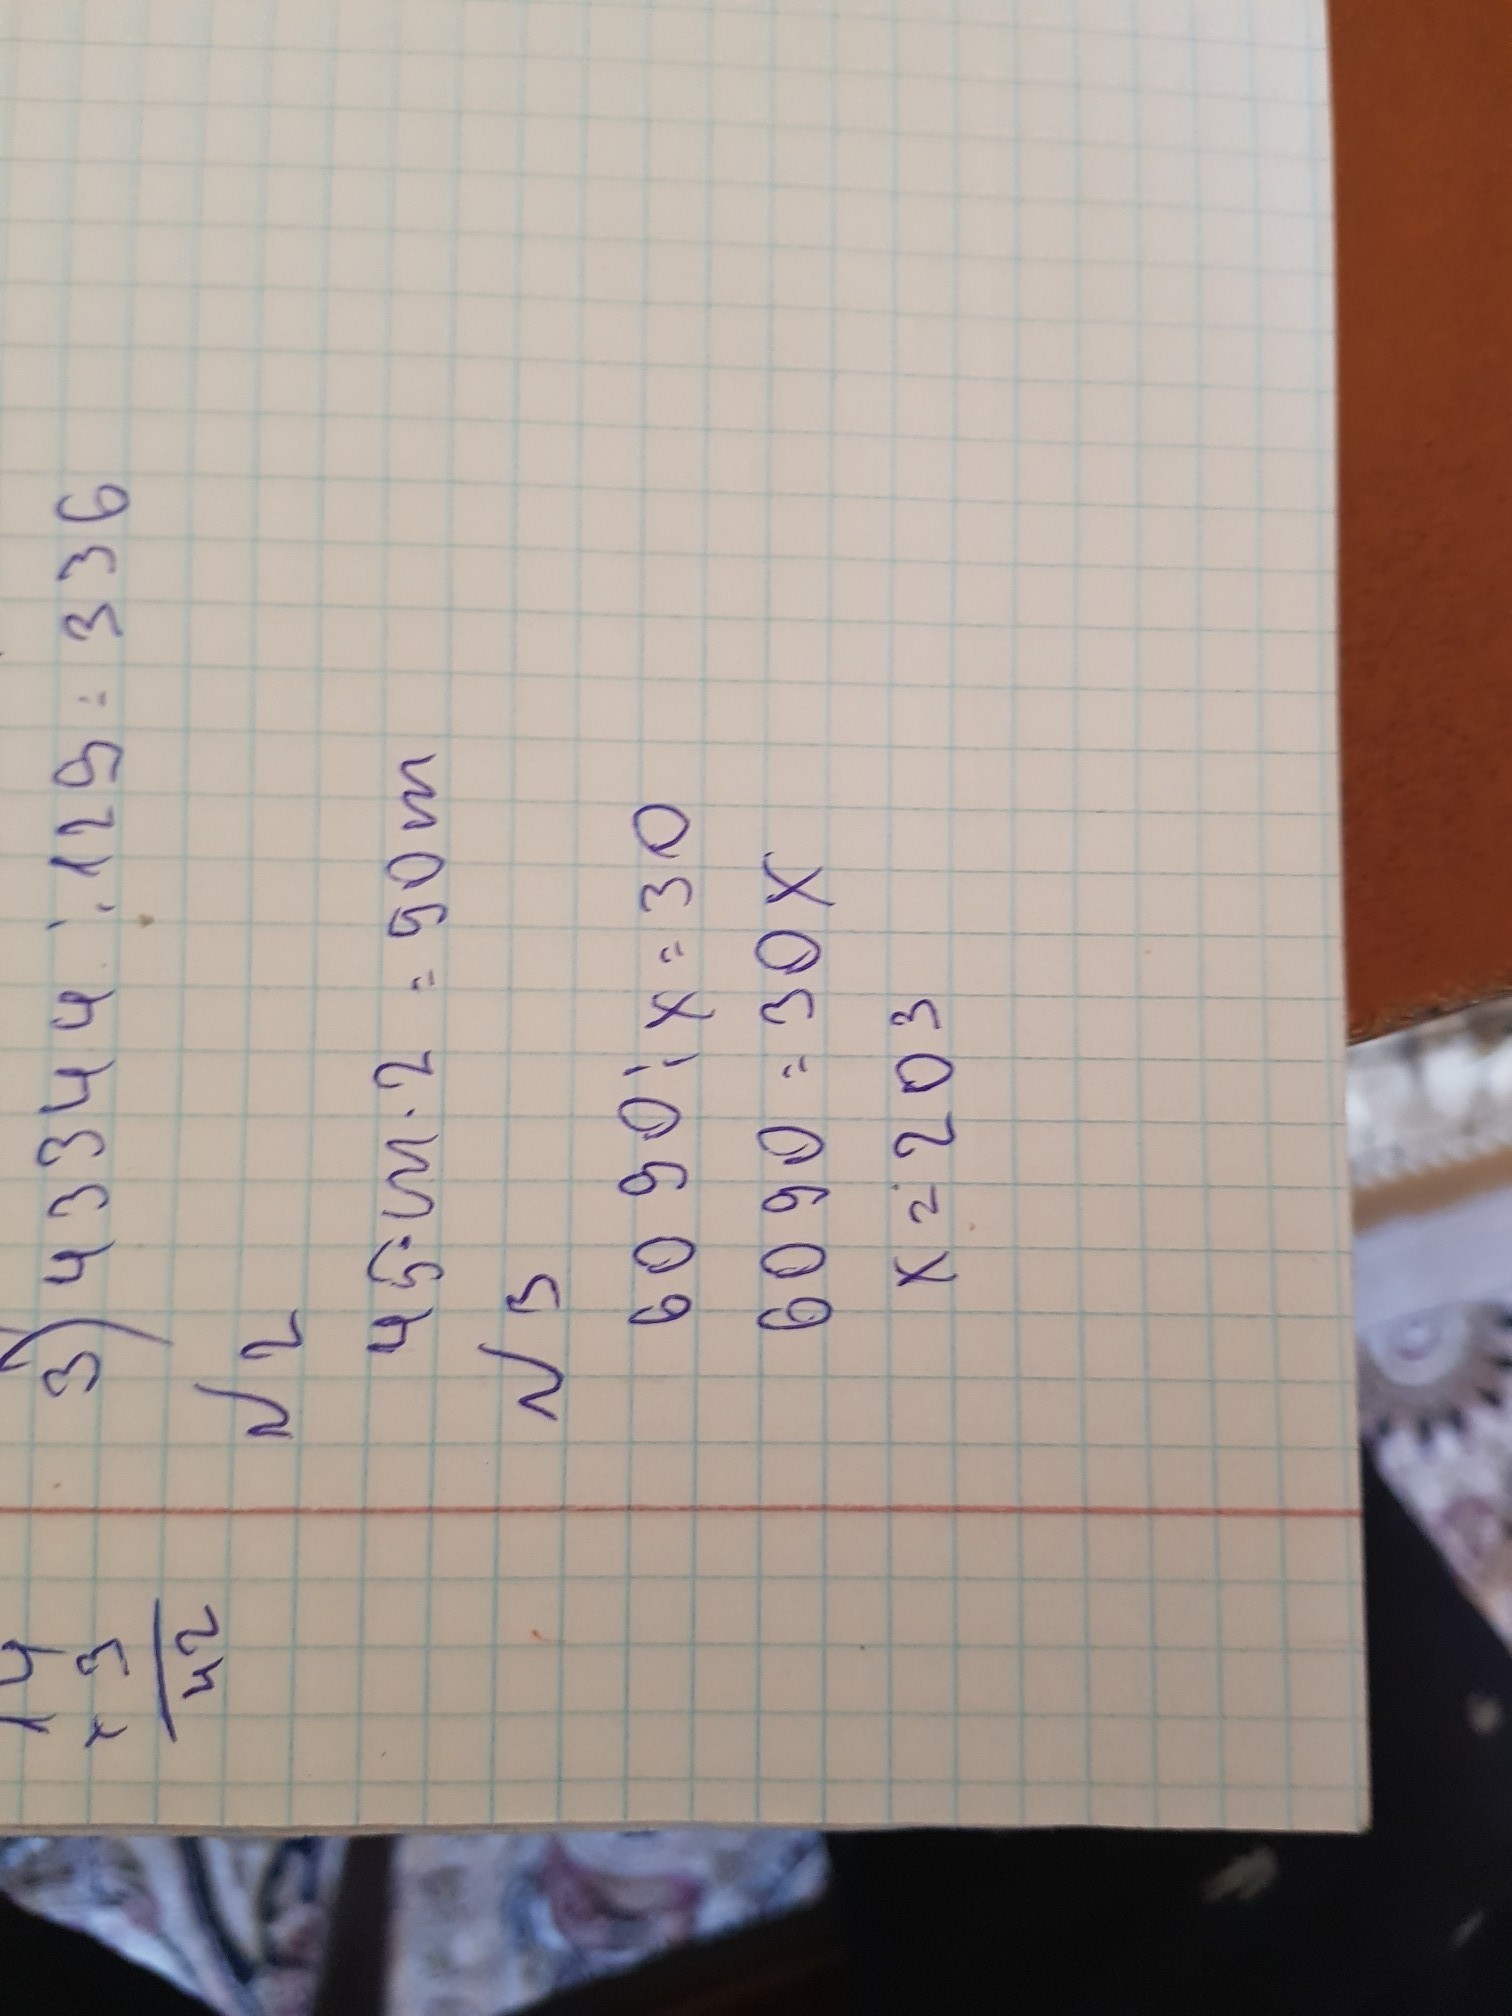 14
× 3
42
3) 43344 : 129 = 336
√ 2
45 m · 2 = 90 m
√ 3
6090 : x = 30
6090 = 30 x
x = 203